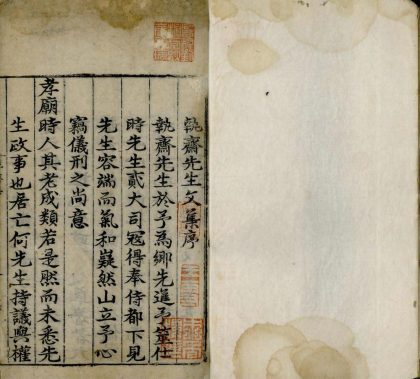 執齋先生文集序
執齋先生於予為鄉先進予筮仕
時先生貳大司寇得奉侍都下見
先生容端而氣和嶷然山立予心
竊儀刑之尚意
孝廟時人其老成類若是熙而未悉先
生政事也居亡何先生持議與權